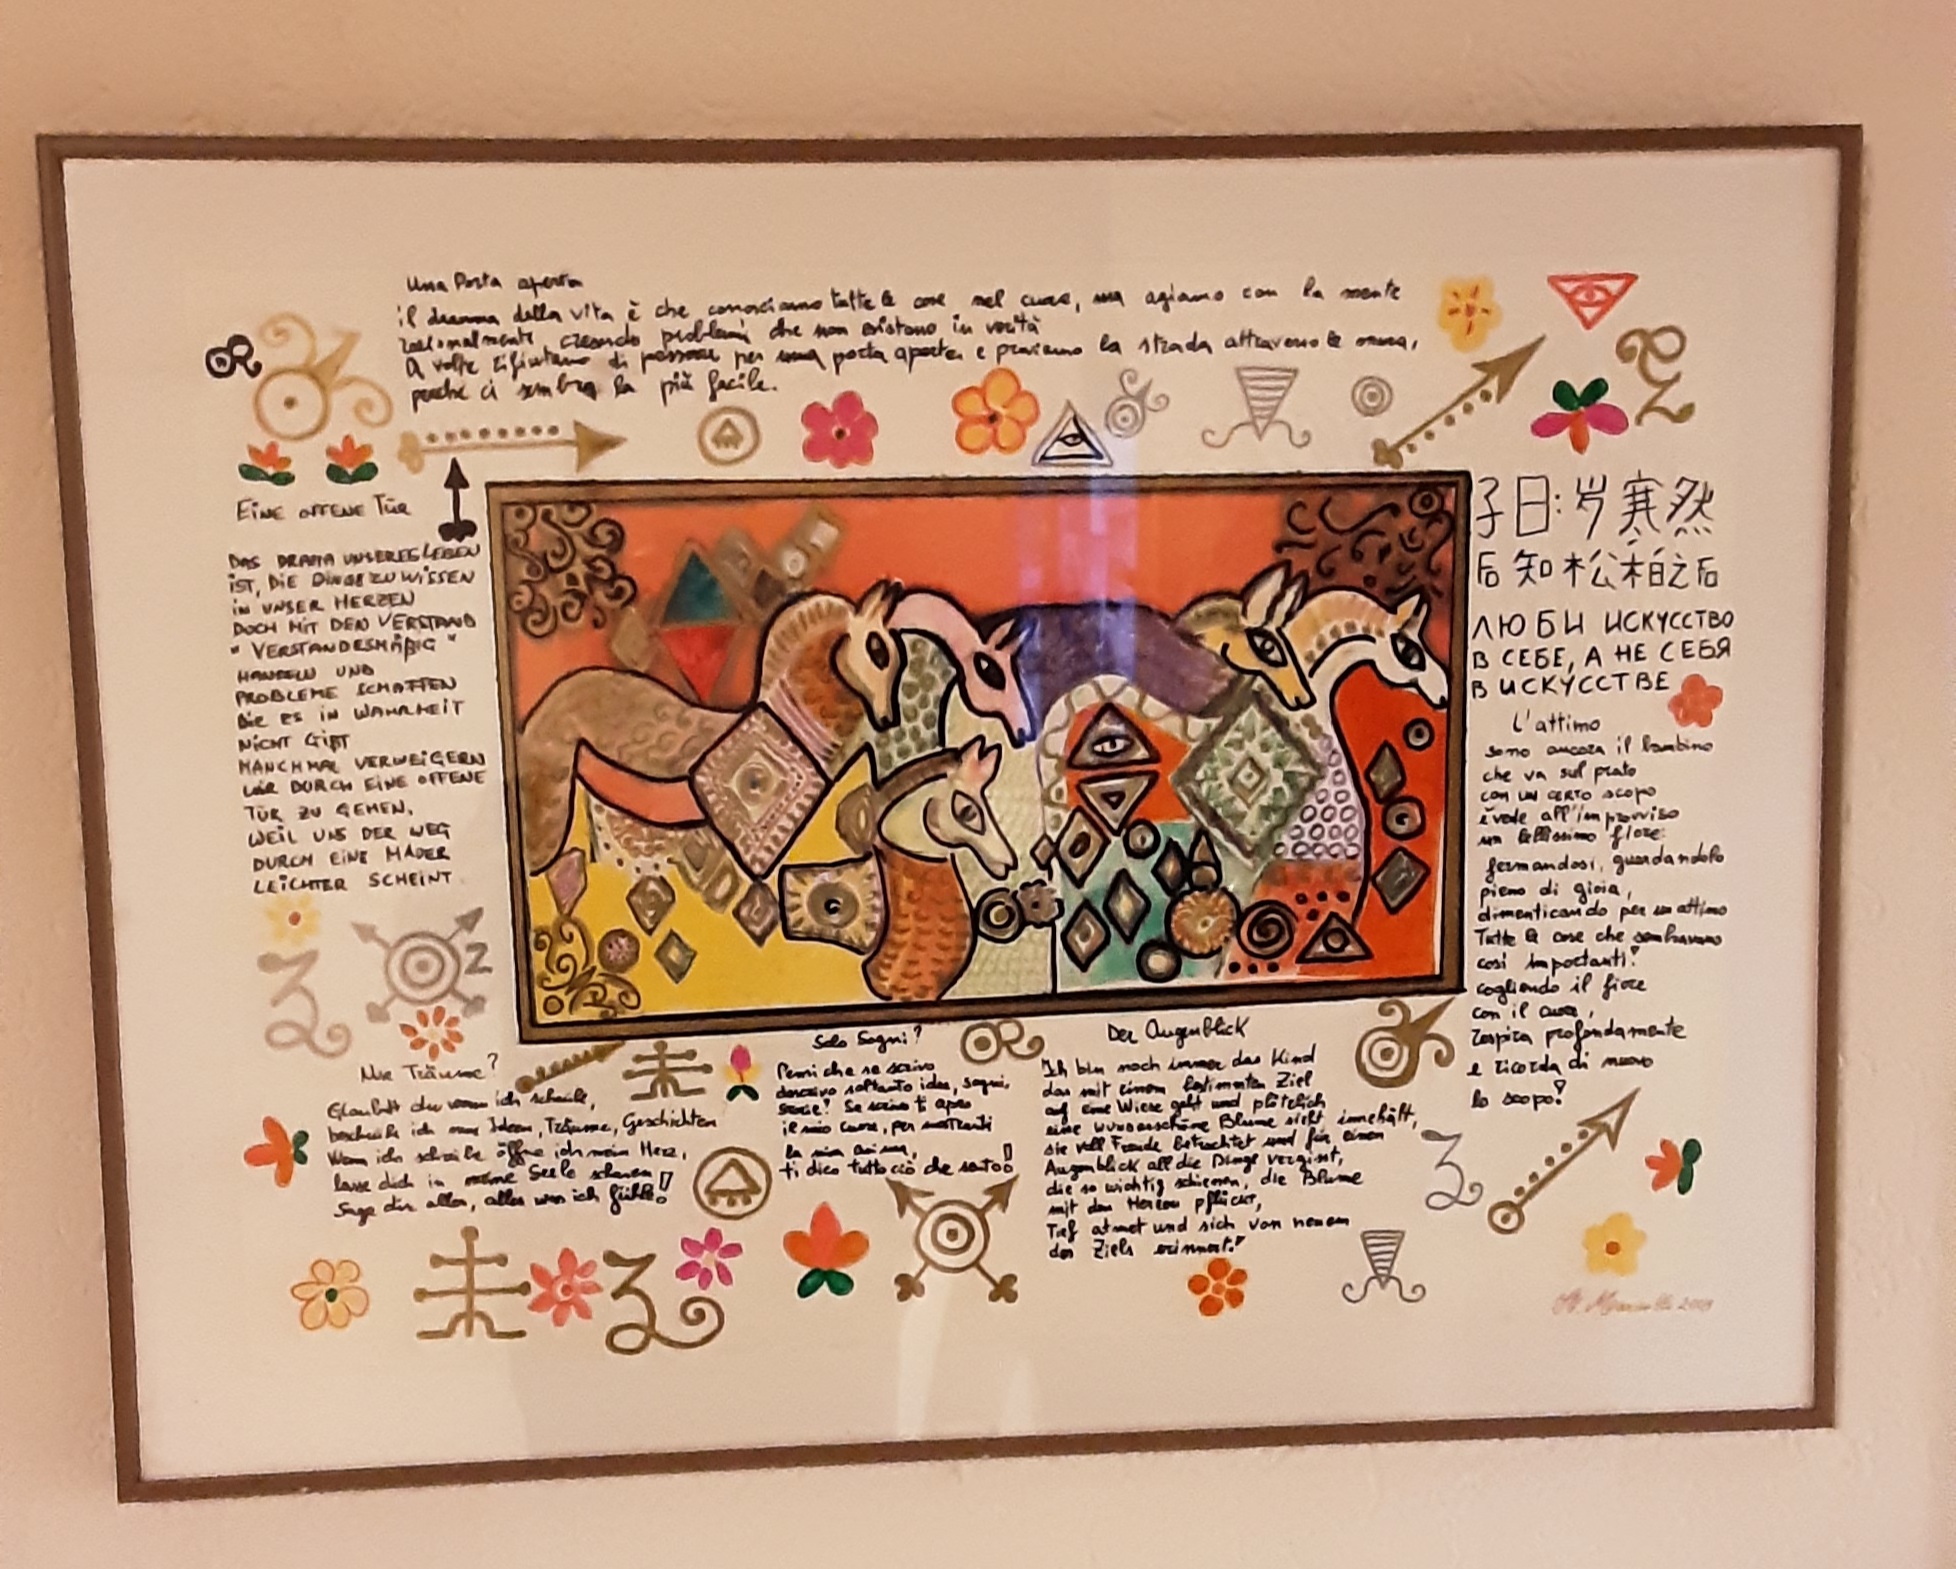 Una Porta aperta
il dramma della vita è che conosciamo tutte le cose nel cuore, ma agiamo con la mente
razionalmente creando problemi che non esistono in verità
A volte rifiutiamo di passare per una porta aperta e proviamo la strada attraverso le mura,
perché ci sembra la più facile.
EINE OFFENE TÜR
DAS DRAMA UNSERES LEBEN
IST, DIE DINGE ZU WISSEN
IN UNSER HERZEN
DOCH MIT DEN VERSTAND
"VERSTANDESMÄßIG"
HANDELN UND
PROBLEME SCHAFFEN
DIE ES IN WAHRHEIT
NICHT GIBT
MANCHMAL VERWEIGERN
WIR DURCH EINE OFFENE
TÜR ZU GEHEN,
WEIL UNS DER WEG
DURCH EINE MAUER
LEICHTER SCHEINT.
子曰:岁寒然
后知松柏之后
ЛЮБИ ИСКУССТВО
В СЕБЕ, А НЕ СЕБЯ
В ИСКУССТВЕ
L'attimo
sono ancora il bambino
che va sul prato
con un certo scopo
e vede all'improvviso
un bellissimo fiore:
fermandosi, guardandolo
pieno di gioia,
dimenticando per un attimo
Tutte le cose che sembravano
così importanti!
cogliendo il fiore
con il cuore,
respira profondamente
e ricorda di nuovo
lo scopo!
Nur Träume?
Glaubst du wenn ich schreibe,
beschreibe ich nur Ideen, Träume, Geschichten
Wenn ich schreibe öffne ich mein Herz,
lasse dich in meine Seele schauen!
Sage dir alles, alles was ich fühle!
Solo Sogni?
Pensi che se scrivo
descrivo soltanto idee, sogni,
storie? Se scrivo ti apro
il mio cuore, per mostrarti
la mia anima,
ti dico tutto ciò che sento!
Der Augenblick
Ich bin noch immer das Kind
das mit einem bestimmten Ziel
auf eine Wiese geht und plötzlich
eine wunderschöne Blume sieht innehält,
sie voll Freude betrachtet und für einen
Augenblick all die Dinge vergisst,
die so wichtig schienen, die Blume
mit dem Herzen pflückt,
Tief atmet und sich von neuem
des Ziels erinnert!